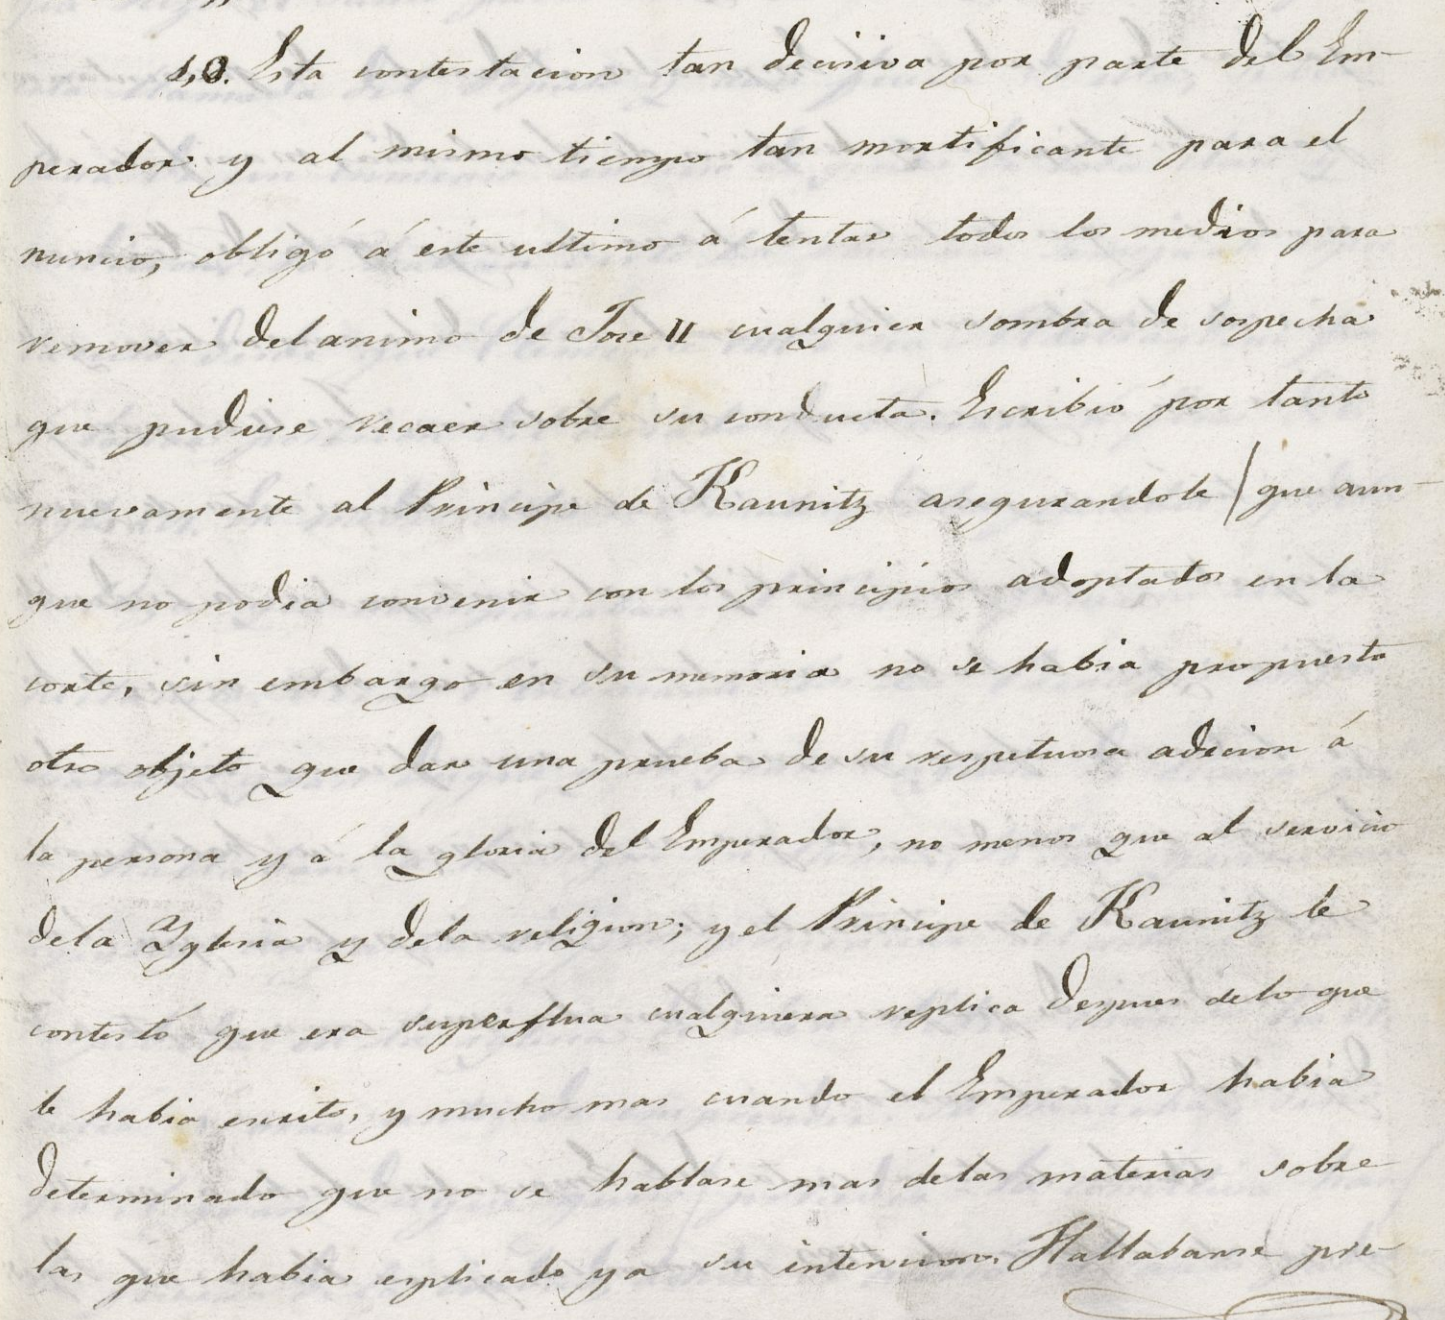 10. Esta contestacion tan decisiva por parte del Em-
perador y al mismo tiempo tan mortificante para el
nuncio, obligó á este ultimo á tentar todos los medios para
remover del animo de Jose II cualquier sombra de sospecha
que pudiese recaer sobre su conducta. Escribió por tanto
nuevamente al Principe de Kaunitz asegurandole / que aun-
que no podia convenir con los principios adoptados en la
corte, sin embargo en su memoria no se habia propuesto
otro objeto que dar una prueba de su respetuosa adecion á
la persona y á la gloria del Emperador, no menos que al servicio
dela Yglesia y dela religion; y el Principe de Kaunitz le
contestó que era superflua cualquiera replica despues delo que
le habia escrito, y mucho mas cuando el Emperador habia
determinado que no se hablase mas delas materias sobre
las que habia esplicado ya su intencion. Hallabanse pre-